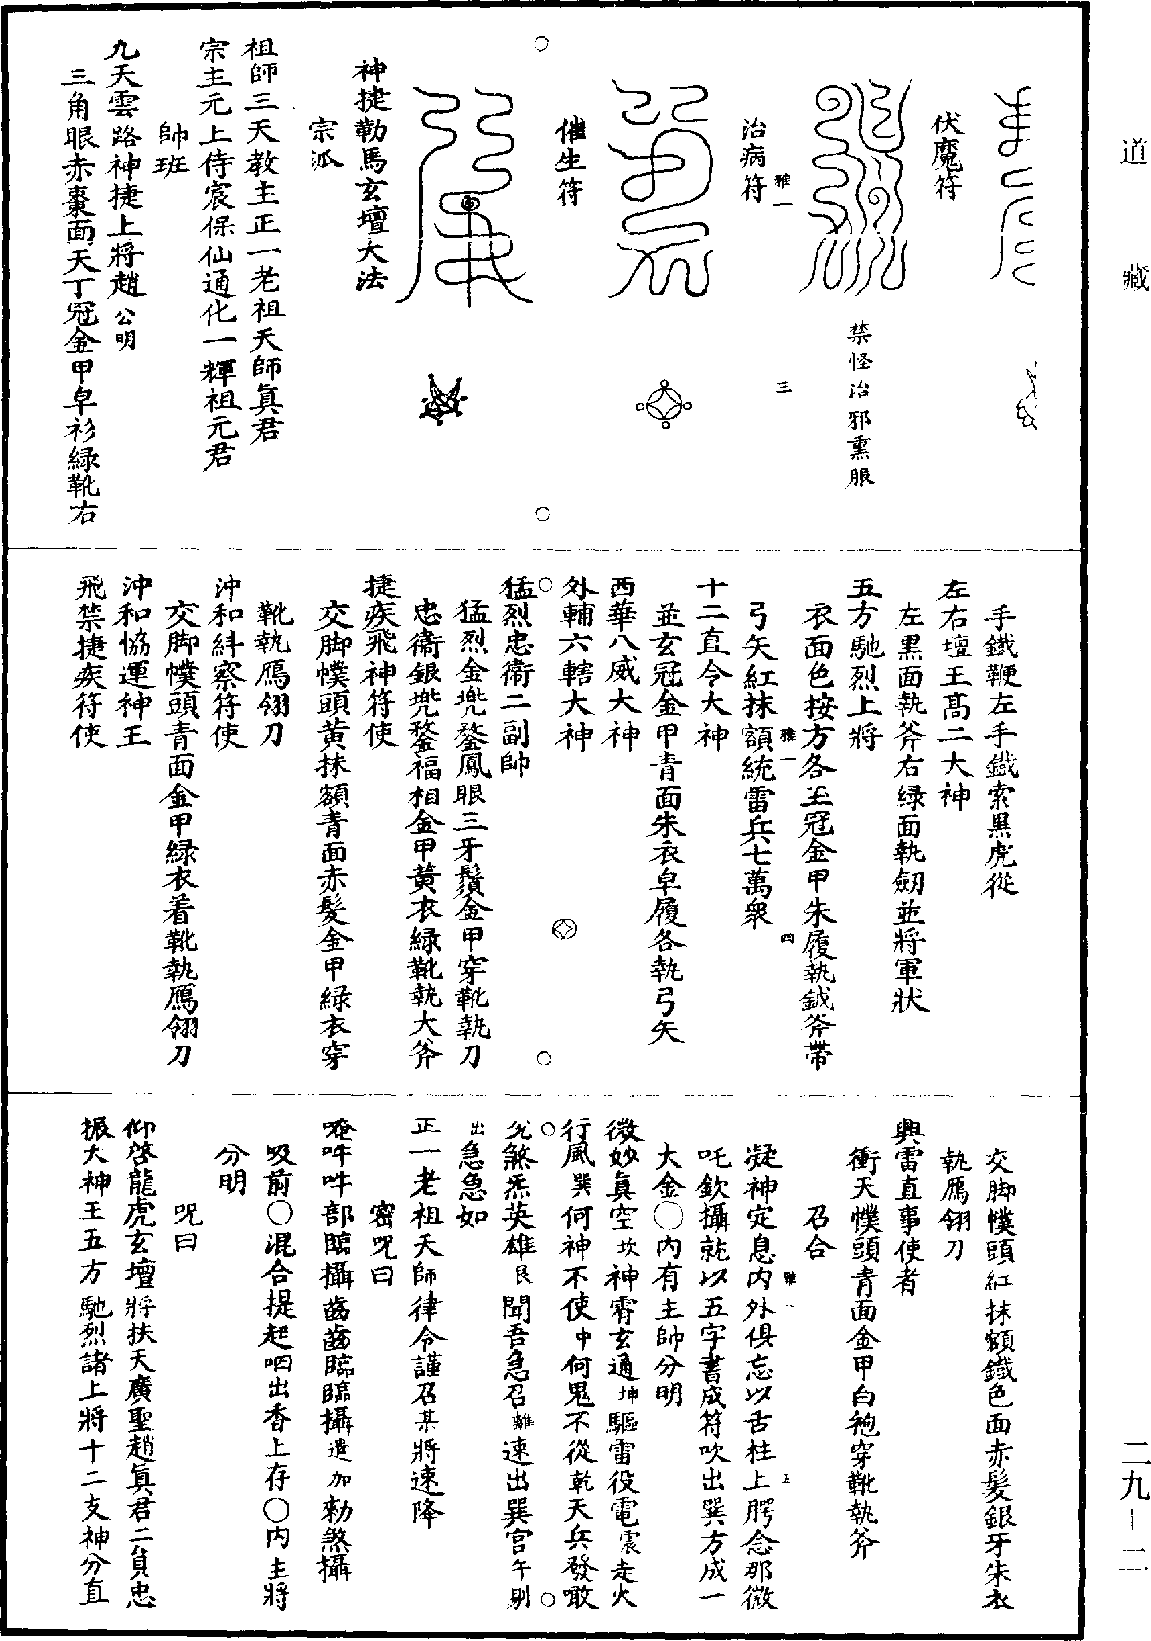 道藏
伏魔符
禁怪治邪熏服
治病符
雅一
三
催生符
神捷勒馬玄壇大法
宗派
祖師三天教主正一老祖天師真君
宗主元上侍宸保仙通化一輝祖元君
帥班
九天雲路神捷上將趙公明
三角眼赤棗面天丁冠金甲皁衫綠靴右
手鐵鞭左手鐵索黑虎從
左右壇王高二大神
左黑面執斧右綠面執劒並將軍狀
五方馳烈上將
衣面色按方各玉冠金甲朱履執鉞斧帶
弓矢紅抹額統雷兵七萬衆
雅一
四
十二直令大神
並玄冠金甲青面朱衣皁履各執弓矢
西華八威大神
外輔六轄大神
猛烈忠衛二副帥
猛烈金兠鍪鳳眼三牙鬚金甲穿靴執刀
忠衛銀兠鍪福相金甲黃衣綠靴執大斧
捷疾飛神符使
交脚幞頭黄抹額青面赤髮金甲綠衣穿
靴執鴈翎刀
沖和糾察符使
交脚幞頭青面金甲綠衣着靴執鴈翎刀
沖和恊運神王
飛禁捷疾符使
交脚幞頭紅抹額鐵色面赤髮銀牙朱衣
執鴈翎刀
興雷直事使者
衝天幞頭青面金甲白袍穿靴執斧
召合
凝神定息内外俱忘以舌柱上腭念那微
雅一
五
吒欽攝就以五字書成符吹出巽方成一
大金〇内有主帥分明
微妙真空坎神霄玄通坤驅雷役電震走火
行風巽何神不使中何鬼不從乾天兵發敢
兊煞炁英雄艮聞吾急召離速出巽宫午剔
出急急如
正一老祖天師律令謹召某將速降
密呪曰
唵吽吽部臨攝齒齒臨臨攝遣加勑煞攝
吸前〇混合提起呬出香上存〇内主將
分明
呪曰
仰啓龍虎玄壇將扶天廣聖趙真君二負忠
振大神王五方馳烈諸上將十二支神分直
二九–二